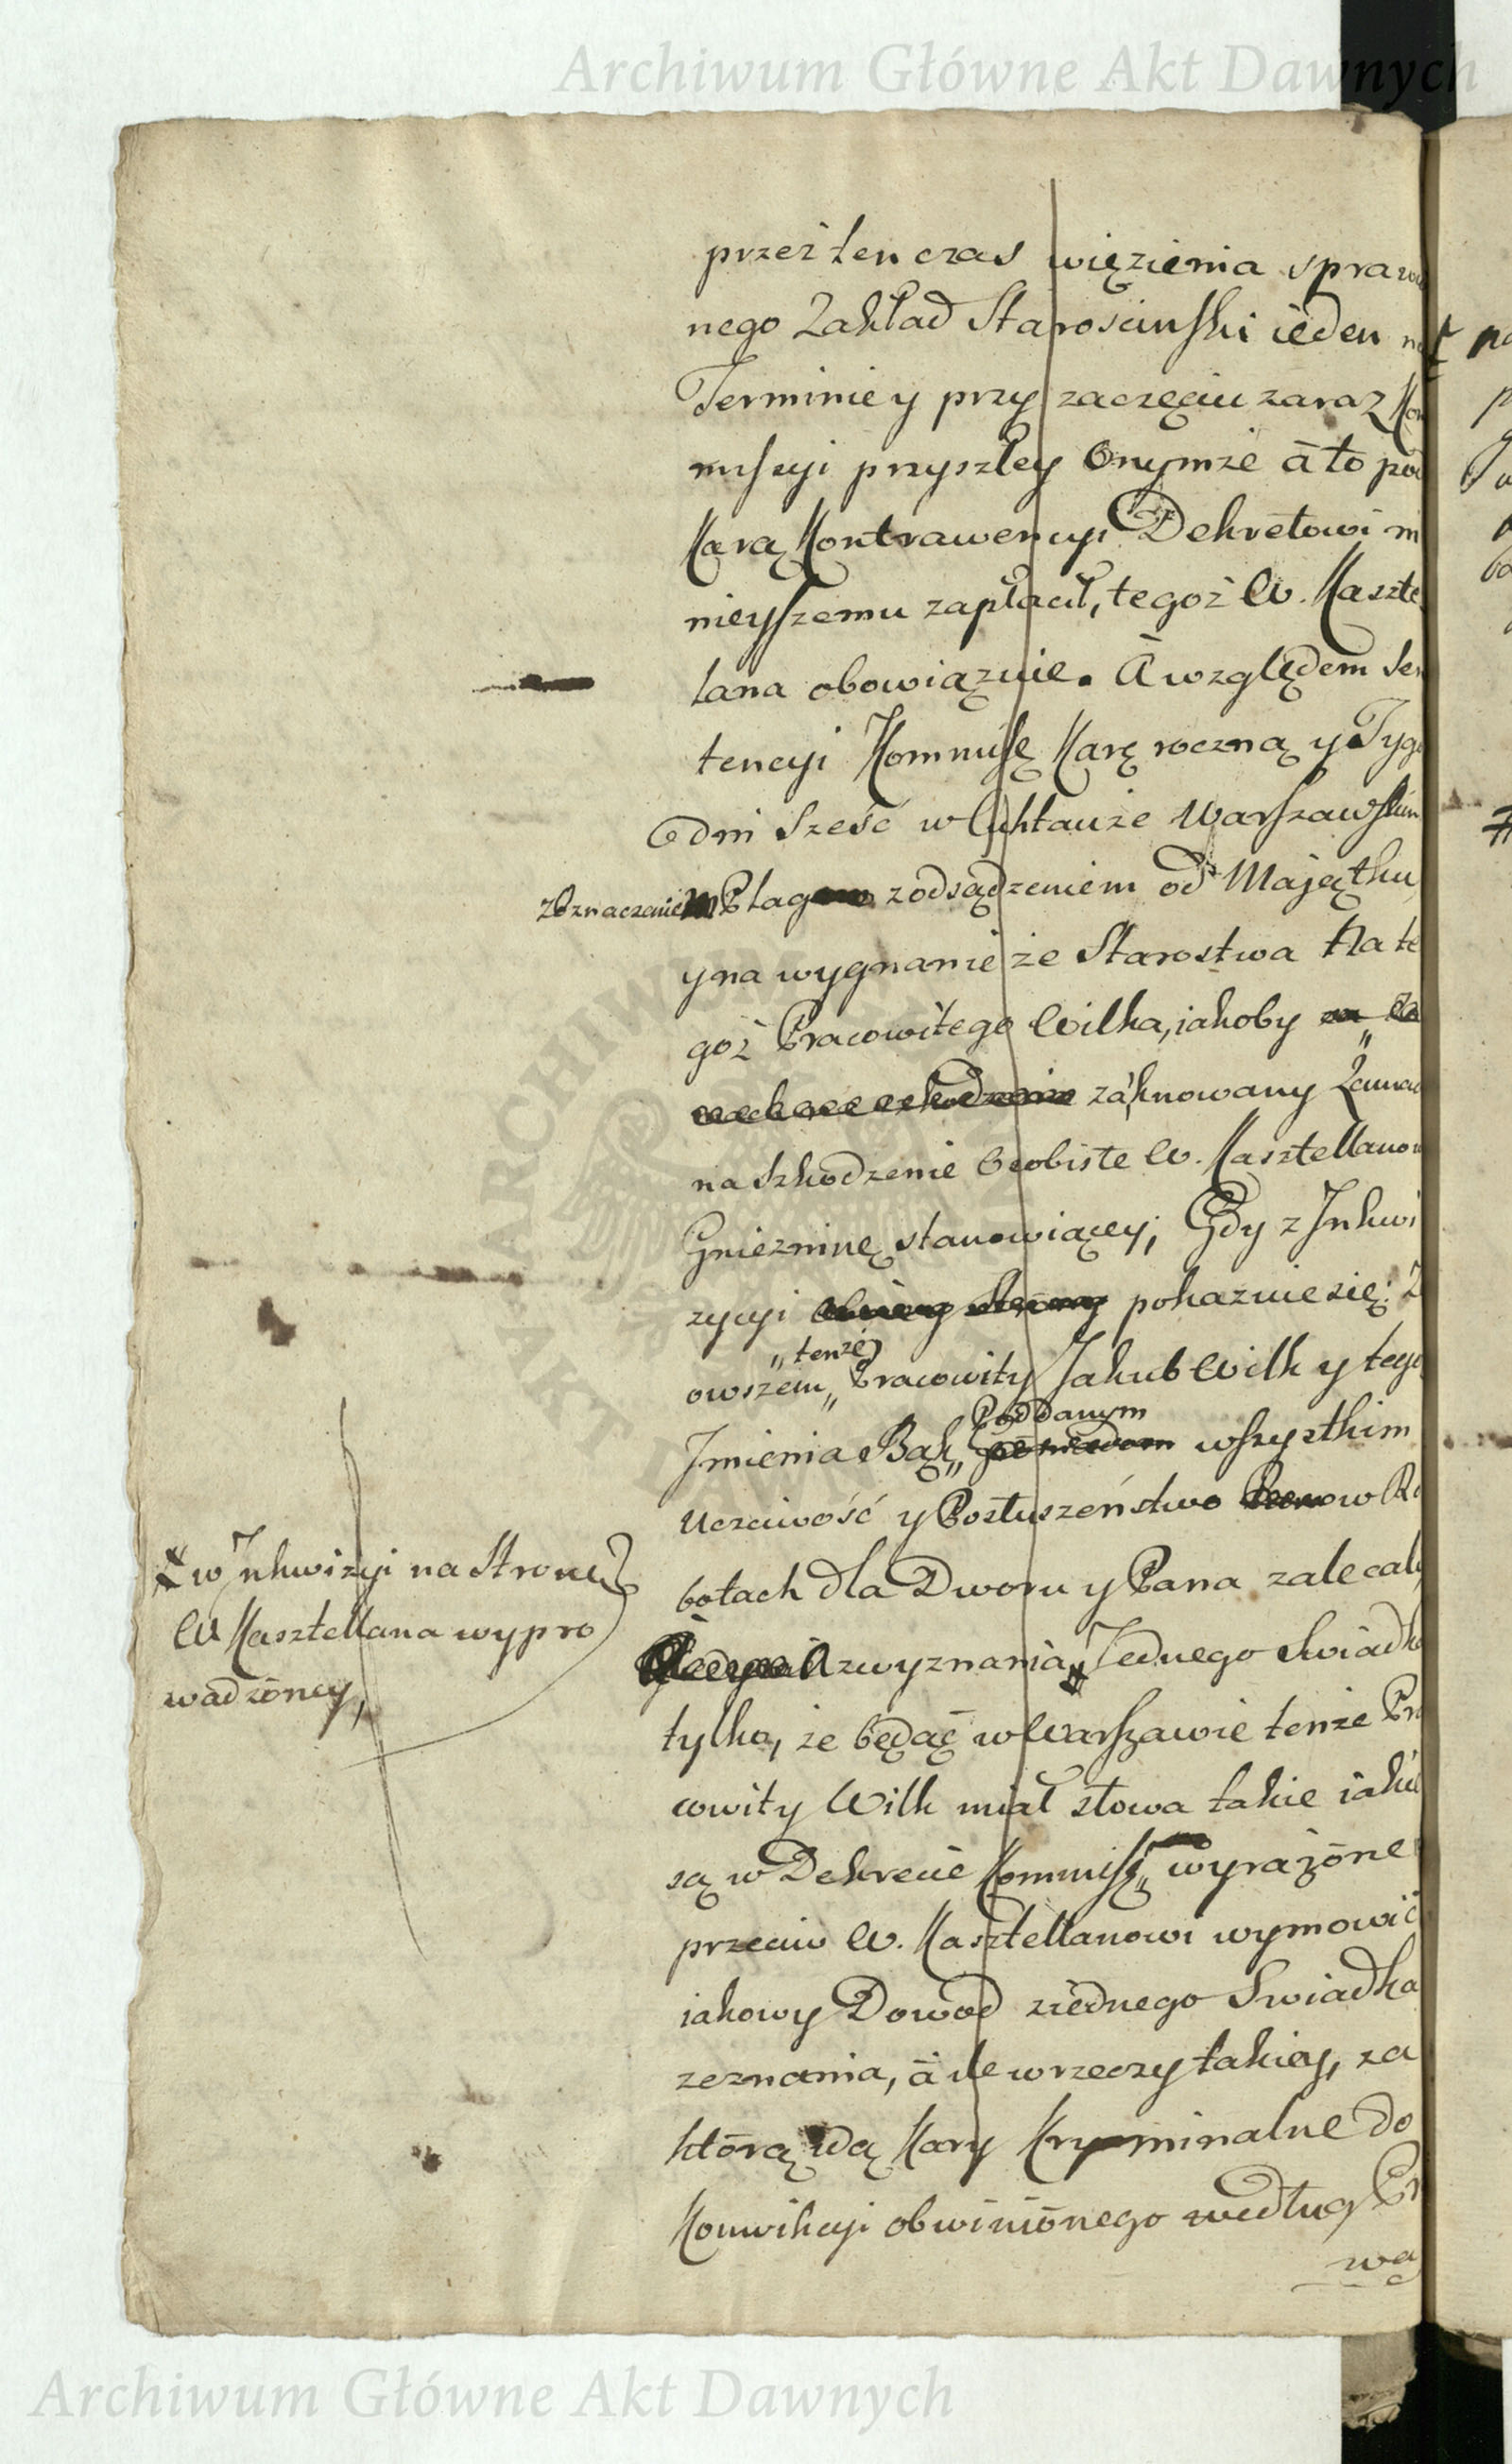 Archiwum Główne Akt Dawnych
przez ten czas więzienia spraw
nego Zakład Starosciński ieden na
Terminie y przy zaczęciu zaraz Kom
missyi przyszłey Onymże à to pod
Karą Kontrawencyi Dekretowi ni
nieyszemu zapłacił, tegoż W. Kaszte
lana obowiązuie. A względem Sen
tencyi Kommissę Karę roczną y Tygo
dni sześć w Cuhtauze Warszawskim
z Oznaczeniem Plag z odsądzeniem od Maiątku,
y na wygnanie ze Starostwa Na te
goż Pracowitego Wilka, iakoby
zaknowany Zamach
na Szkodzenie Osobiste W. Kasztellanow
Gnieznine stanowiącey; Gdy z Inkwi
zycyi pokazuie się: Z
„tenże
owszem „ Pracowity Jakub Wilk y tego
Poddanym
Imienia Bąk „ wszystkim
Uczciwość y Posłuszeństwo w Ro
botach dla Dworu y Pana zalecali,
A z wyznania Jednego Swiadka
w Inkwizyi na Stronę
W Kasztellana wypro
wadzoney,
tylko, że będąc w Warszawie tenże Pra
cowity Wilk miał słowa takie iakie
są w Dekrecie Kommiss: wyrażone
przeciw W. Kasztellanowi wymowić
iakowy Dowod z iednego Swiadka
zeznania, à ile w rzeczy takiey, za
którą idą Kary Kryminalne do
Konwikcyi obwinionego według Pr
wa
Archiwum Główne Akt Dawnych